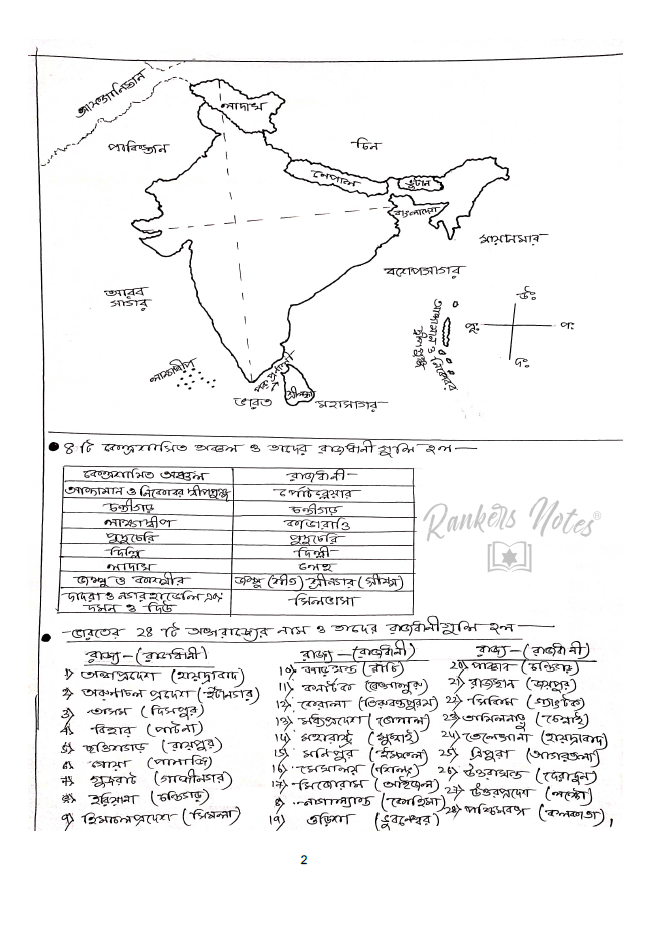 আফগানিস্তান
লাদাখ
পাকিস্তান
চিন
নেপাল
ভুটান
বাংলাদেশ
মায়ানমার
বঙ্গোপসাগর
আরব
সাগর
উঃ
পূঃ
পঃ
দঃ
আন্দামান ও নিকোবর
দ্বীপপুঞ্জ
লাক্ষাদ্বীপ
পক প্রণালী
শ্রীলঙ্কা
ভারত মহাসাগর
● ৪ টি কেন্দ্রশাসিত অঞ্চল ও তাদের রাজধানী গুলি হল —
কেন্দ্রশাসিত অঞ্চল রাজধানী
আন্দামান ও নিকোবর দ্বীপপুঞ্জ পোর্টব্লেয়ার
চন্ডীগড় চন্ডীগড়
লাক্ষাদ্বীপ কাভারাত্তি
পুদুচেরি পুদুচেরি
দিল্লি দিল্লী
লাদাখ লেহ
জম্মু ও কাশ্মীর জম্মু (শীত) শ্রীনগর (গ্রীষ্ম)
দাদরা ও নগর হাভেলি এবং
দমন ও দিউ
সিলভাসা
Rankers Notes®
● ভারতের 28 টি অঙ্গরাজ্যের নাম ও তাদের রাজধানীগুলি হল —
রাজ্য - (রাজধানী)
1) অন্ধ্রপ্রদেশ (হায়দ্রাবাদ)
2) অরুণাচল প্রদেশ (ইটানগর)
3) অসম (দিসপুর)
4) বিহার (পাটনা)
5) ছত্তিশগড় (রায়পুর)
6) গোয়া (পানাজি)
7) গুজরাট (গান্ধীনগর)
8) হরিয়ানা (চন্ডিগড়)
9) হিমাচলপ্রদেশ (সিমলা)
রাজ্য - (রাজধানী)
10) ঝাড়খন্ড (রাঁচি)
11) কর্ণাটক (বেঙ্গালুরু)
12) কেরালা (তিরুবন্তপুরম)
13) মধ্যপ্রদেশ (ভোপাল)
14) মহারাষ্ট্র (মুম্বাই)
15) মনিপুর (ইম্ফল)
16) মেঘালয় (শিলং)
17) মিজোরাম (আইজল)
8) নাগাল্যান্ড (কোহিমা)
19) ওড়িশা (ভুবনেশ্বর)
রাজ্য - (রাজধানী)
20) পাঞ্জাব (চন্ডিগড়)
21) রাজস্থান (জয়পুর)
22) সিকিম (গ্যাংটক)
23) তামিলনাড়ু (চেন্নাই)
24) তেলেঙ্গানা (হায়দ্রাবাদ)
25) ত্রিপুরা (আগরতলা)
26) উত্তরাখন্ড (দেরাদুন)
27) উত্তরপ্রদেশ (লক্ষ্ণৌ)
28) পশ্চিমবঙ্গ (কলকাতা) ,
2